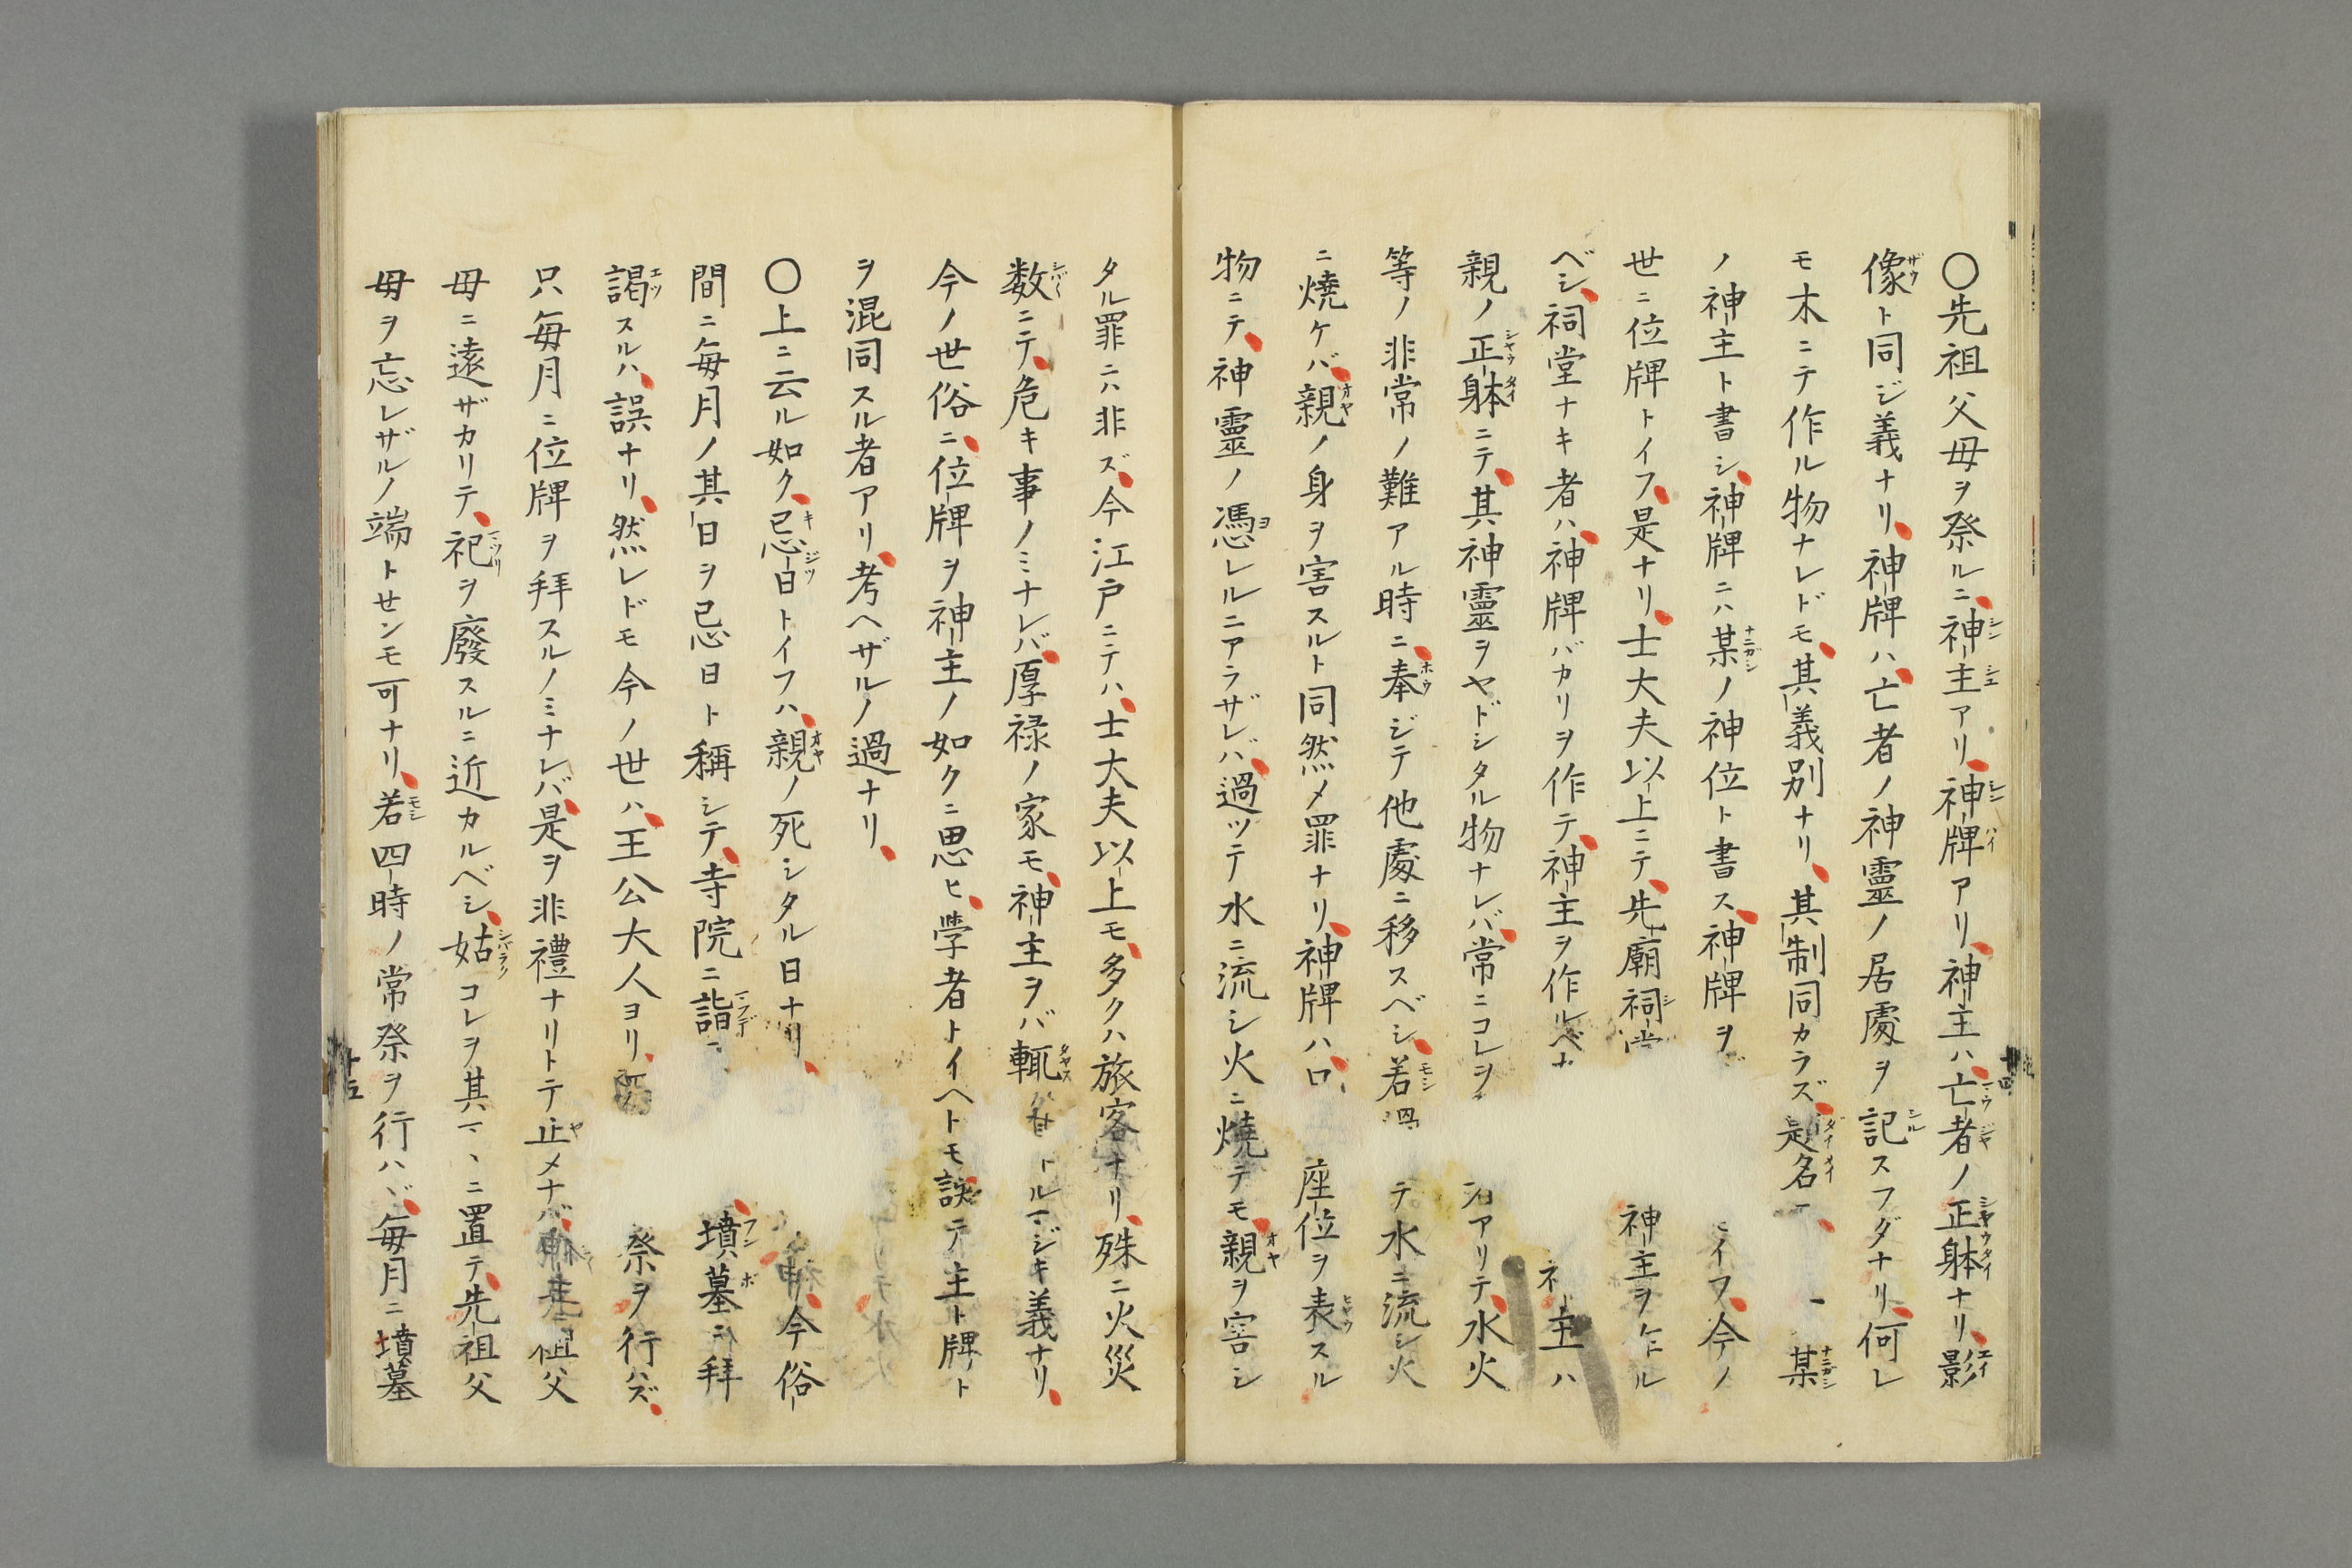 〇先祖父母ヲ祭ルニ、神主アリ、神牌アリ、神主ハ、亡者ノ正躰ナリ、影
像ト同ジ義ナリ、神牌ハ、亡者ノ神靈ノ居處ヲ記スフダナリ、何レ
モ木ニテ作ル物ナレドモ、其義別ナリ、其制同カラズ、題名ー、某
ノ神主ト書シ、神牌ニハ某ノ神位ト書ス、神牌ヲ モイフ、今ノ
世ニ位牌トイフ、是ナリ、士大夫以上ニテ、先廟祠 神主ヲ作ル
ベシ、祠堂ナキ者ハ、神牌バカリヲ作テ、神主ヲ作ルベ 主ハ
親ノ正躰ニテ、其神靈ヲヤドシタル物ナレバ、常ニコレヲ アリテ、水火
等ノ非常ノ難アル時ニ、奉ジテ他處ニ移スベシ、若 テ水ニ流シ火
ニ燒ケバ、親ノ身ヲ害スルト同然メ罪ナリ、神牌ハ、 座位ヲ表スル
物ニテ、神靈ノ憑レルニアラザレバ、過ツテ水ニ流シ火ニ燒テモ、親ヲ害シ
タル罪ニハ非ズ、今江戸ニテハ、士大夫以上モ、多クハ旅客ナリ、殊ニ火災
数ニテ、危キ事ノミナレバ、厚禄ノ家モ、神主ヲバ輙 トルマジキ義ナリ、
今ノ世俗ニ、位牌ヲ神主ノ如クニ思ヒ、學者トイヘトモ誤テ主ト牌ト
ヲ混同スル者アリ、考ヘザルノ過ナリ、
〇上ニ云ル如ク、忌日トイフハ、親ノ死シタル日ナリ、 今俗
間ニ毎月ノ其日ヲ忌日ト稱シテ、寺院ニ詣 墳墓ニ拜
謁スルハ、誤ナリ、然レドモ今ノ世ハ、王公大人ヨリ、 祭ヲ行ハズ、
只毎月ニ位牌ヲ拜スルノミナレバ、是ヲ非禮ナリトテ止メナバ、 祖父
母ニ遠ザカリテ、祀ヲ廢スルニ近カルベシ、姑コレヲ其マヽニ置テ、先祖父
母ヲ忘レザルノ端トセンモ可ナリ、若四時ノ常祭ヲ行ハヾ、毎月ニ墳墓